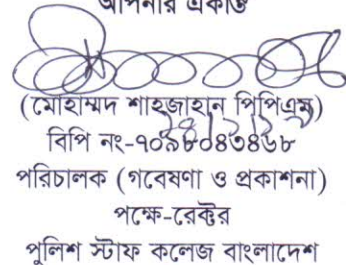 আপনার একান্ত
(মোহাম্মদ শাহজাহান পিপিএম)
বিপি নং-৭০৯৮০৪৩৪৬৮
পরিচালক (গবেষণা ও প্রকাশনা)
পক্ষে-রেক্টর
পুলিশ স্টাফ কলেজ বাংলাদেশ